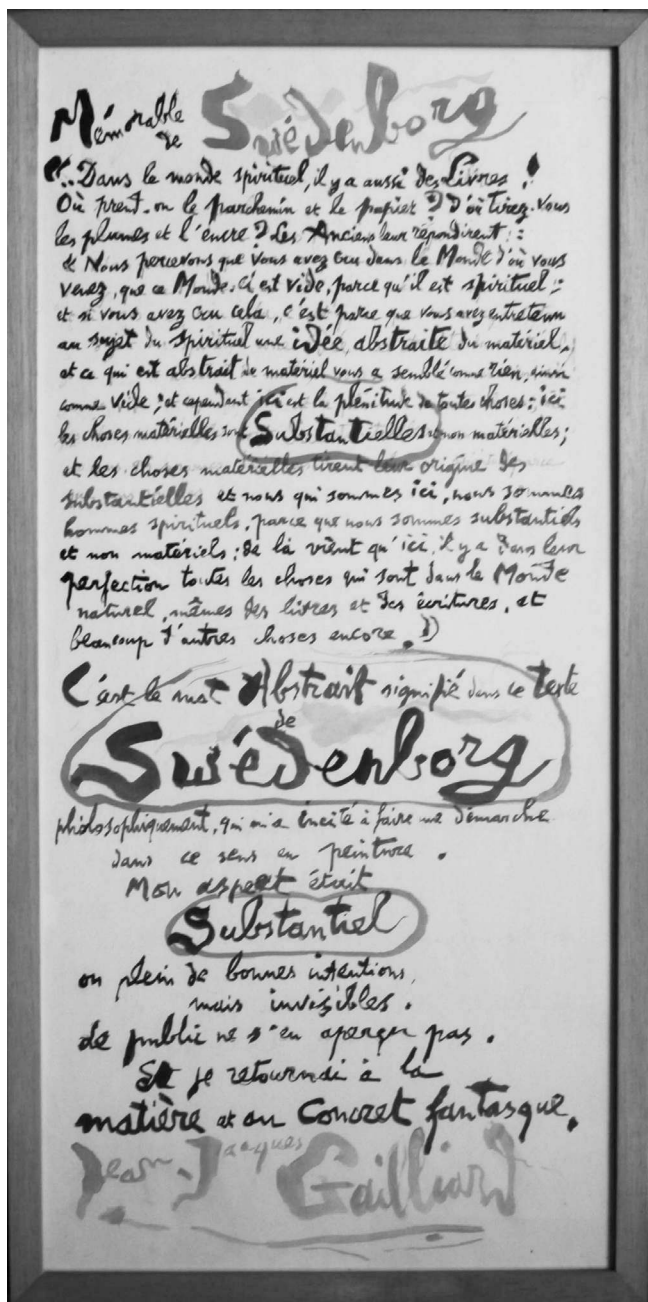 Mémorable de Swédenborg
"... Dans le monde spirituel, il y a aussi des Livres !
Où prend-on le parchemin et le papier ? D'où tirez-vous
les plumes et l'encre ? Les Anciens leur répondirent :
« Nous percevons que vous avez cru dans le Monde d'où vous
venez, que ce Monde-ci est vide, parce qu'il est spirituel ;
et si vous avez cru cela, c'est parce que vous avez entretenu
au sujet du spirituel une idée abstraite du matériel,
et ce qui est abstrait de matériel vous a semblé comme rien, ainsi
comme vide ; et cependant ici est la plénitude de toutes choses ; ici
les choses matérielles sont Substantielles et non matérielles ;
et les choses matérielles tirent leur origine des
substantielles et nous qui sommes ici, nous sommes
hommes spirituels, parce que nous sommes substantiels
et non matériels ; de là vient qu'ici, il y a dans leur
perfection toutes les choses qui sont dans le Monde
naturel, mêmes des livres et des écritures, et
beaucoup d'autres choses encore. »
C'est le mot Abstrait signifié dans ce texte
de
Swédenborg
philosophiquement, qui m'a incité à faire une démarche
dans ce sens en peinture.
Mon aspect était
Substantiel
ou plein de bonnes intentions,
mais invisibles.
de public ne s'en aperçu pas.
Et je retournai à la
matière et au Concret fantasque.
Jean-Jacques Gailliard